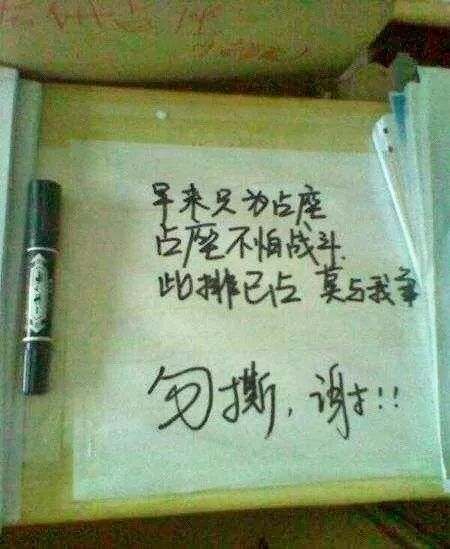 早来只为占座
占座不怕战斗
此排已占 莫与我争
勿撕，谢谢!!